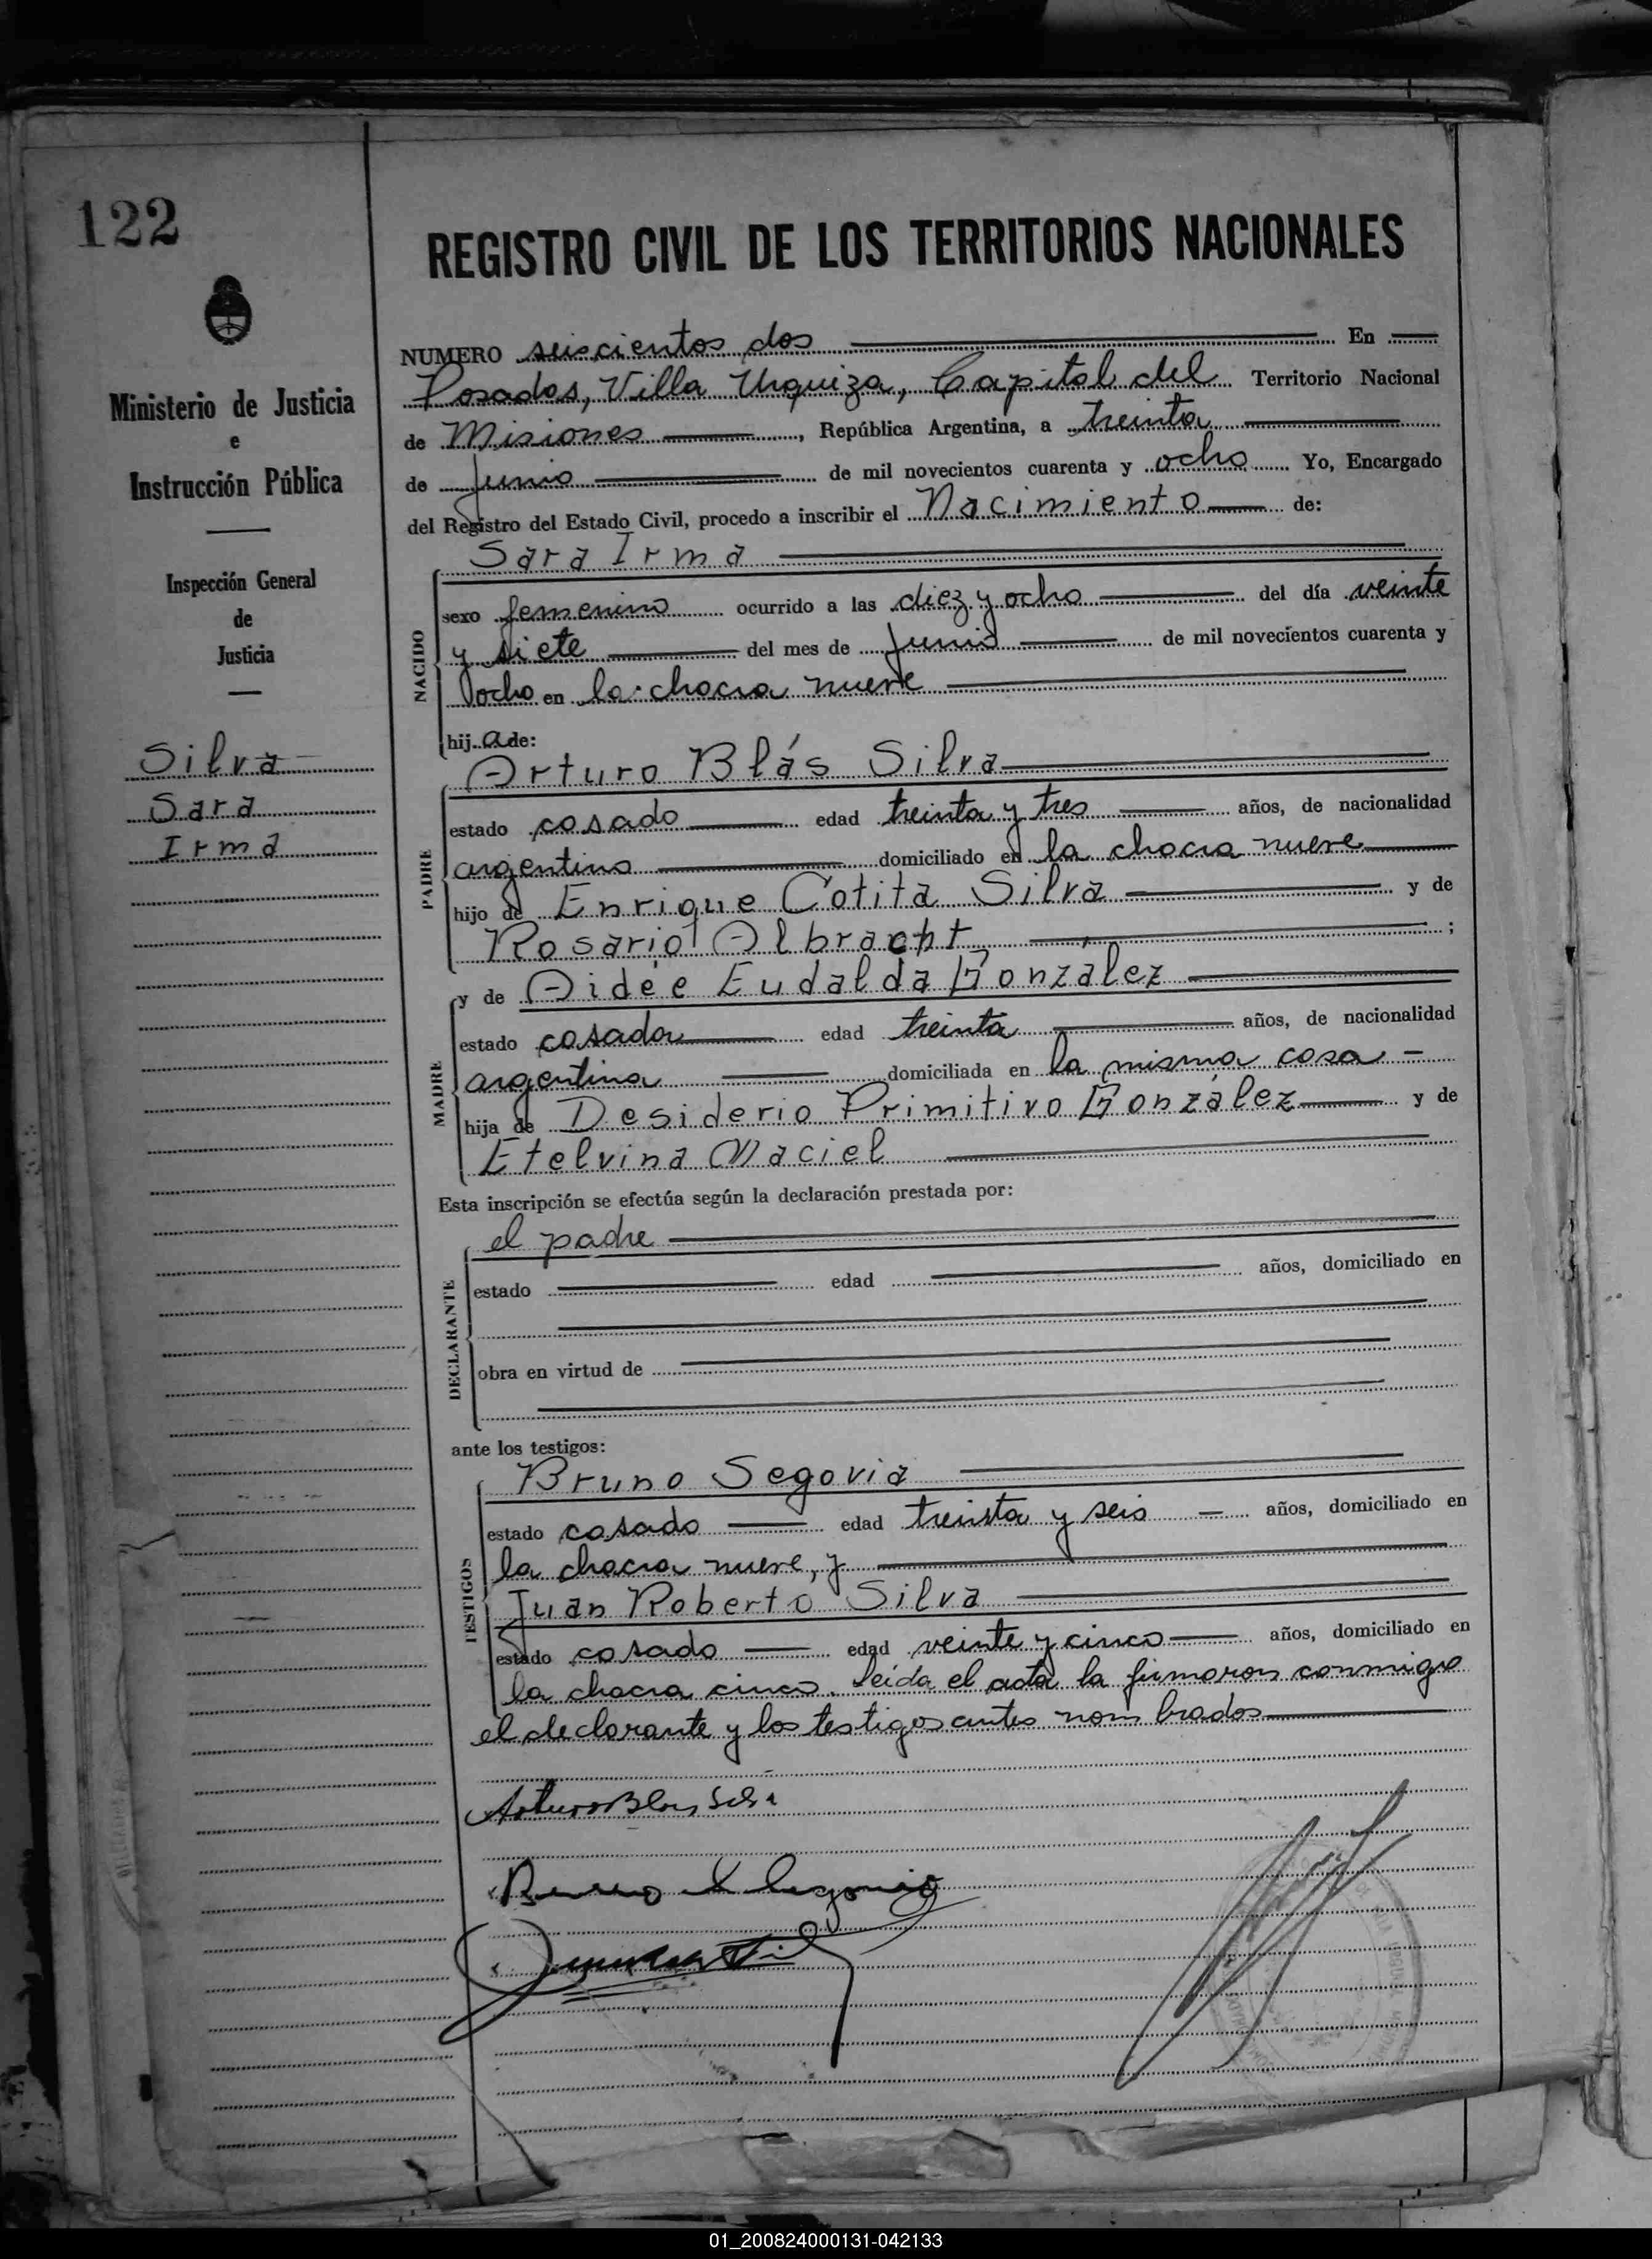 122
Ministerio de Justicia
e
Instrucción Pública
Inspección General
de
Justicia
Silva
Sara
Irma
REGISTRO CIVIL DE LOS TERRITORIOS NACIONALES
NUMERO seiscientos dos En
Posadas, Villa Urquiza, Capital del Territorio Nacional
de Misiones, República Argentina, a treinta
de Junio de mil novecientos cuarenta y ocho Yo, Encargado
del Registro del Estado Civil, procedo a inscribir el Nacimiento de:
Sara Irma
NACIDO
sexo femenino ocurrido a las diez y ocho del día veinte
y siete del mes de Junio de mil novecientos cuarenta y
ocho en la chacra nueve
hija de:
Arturo Blás Silva
PADRE
estado casado edad treinta y tres años, de nacionalidad
argentino domiciliado en la chacra nueve
hijo de Enrique Cotita Silva y de
Rosario Albracht ;
MADRE
y de Aidée Eudalda González
estado casada edad treinta años, de nacionalidad
argentina domiciliada en la misma casa
hija de Desiderio Primitivo González y de
Etelvina Maciel
Esta inscripción se efectúa según la declaración prestada por:
el padre
DECLARANTE
estado edad años, domiciliado en
obra en virtud de
ante los testigos:
Bruno Segovia
TESTIGOS
estado casado edad treinta y seis años, domiciliado en
la chacra nueve, y
Juan Roberto Silva
estado casado edad veinte y cinco años, domiciliado en
la chacra cinco. Leída el acta la firmaron conmigo
el declarante y los testigos antes nombrados
Arturo Blas Silva
Bruno Segovia
01_200824000131-042133